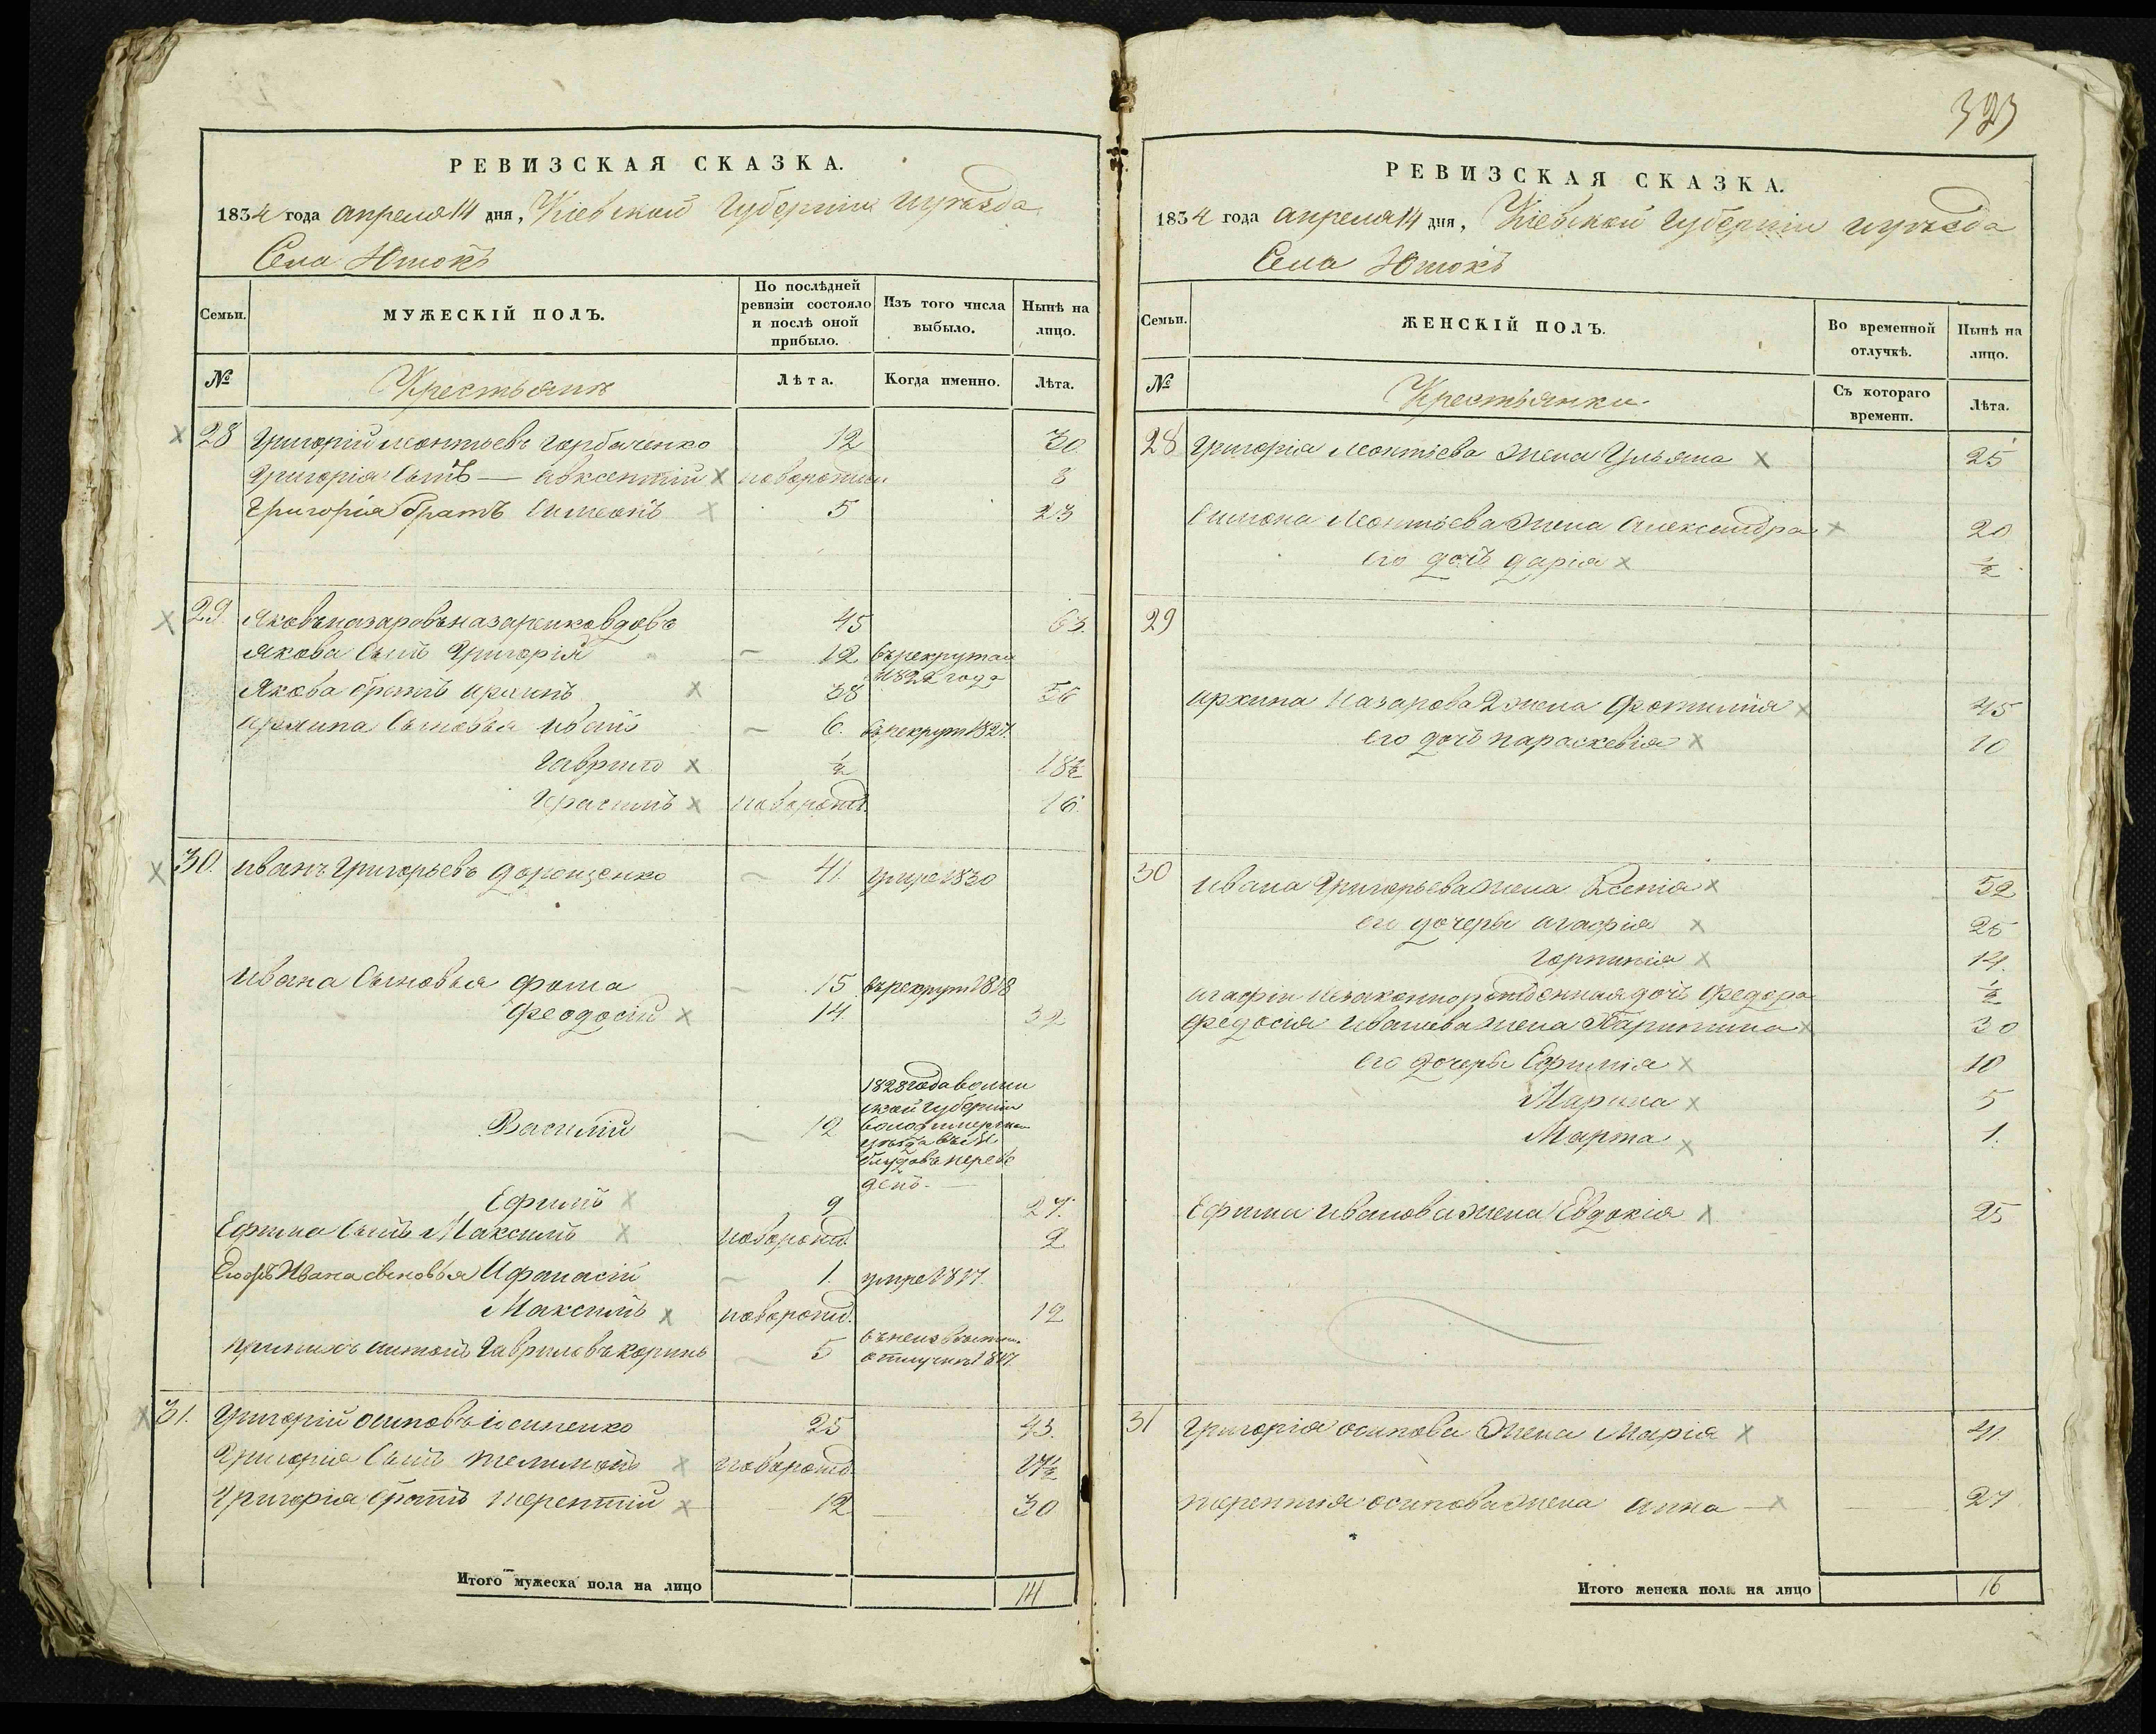 РЕВИЗСКАЯ СКАЗКА.
1834 года апреля 14 дня, Кіевской Губерніи и уѣзда
Села Юток
Семьи. МУЖЕСКІЙ ПОЛЪ. По послѣдней ревизіи состояло и послѣ оной прибыло. Изъ того числа выбыло. Нынѣ на лицо.
№ Крестьяни Лѣта. Когда именно. Лѣта.
28 Григорій Леонтьевъ Горбаченко 12 30
Григорія сынъ — Авксентій новорожден 3
Григорія братъ Симеонъ 5 23
29. Яковъ Назаровъ Назаренко вдовъ 45 63.
Якова сынъ Григорій 12 въ рекрутах 1822 года
Якова братъ Архипъ 38 56
Архипа сыновья Иванъ 6. въ рекрут 1827.
Гаврило ½ 18½
Герасимъ новорожд. 16.
30. Иванъ Григорьевъ Дорошенко 41. умре 1830
Ивана сыновья Фома 15 въ рекрут 1818
Феодосій 14. 32
1828 года волын
ской губерніи
Василій 12 володимерска
уѣзда въ
переве
денъ.
Ефимъ 9 27.
Ефима сынъ Максимъ новорожд. 2
Его жъ Ивана сыновья Афанасій 1. умре 1817.
Максимъ новорожд. 12
Антонъ Гавриловъ 5 въ неизвѣстн. отлучкѣ 1817.
31. Григорій Осиповъ Іосипенко 25 43.
Григорія сынъ Филимонъ новорожд. 17½
Григорія братъ Терентій 12 30
Итого мужеска пола на лицо 14
323
РЕВИЗСКАЯ СКАЗКА.
1834 года апреля 14 дня, Кіевской Губерніи и уѣзда
Села Юток
Семьи. ЖЕНСКІЙ ПОЛЪ. Во временной отлучкѣ. Нынѣ на лицо.
№ Крестьянки. Съ котораго времени. Лѣта.
28 Григорія Леонтіева жена Ульяна 25
Симона Леонтьева жена Александра 20
его дочь Дарія ½
29
Архипа Назарова 2 жена Фотинія 45
его дочь Параскевія 10
30 Ивана Григорьева жена Ксенія 52
его дочери Агафія 25
Горпинія 14.
Агафіи незаконнорожденная дочь Федора ½
Федосія Иванова жена 30
его дочери Ефимія 10
Марина 5
Марта 1.
Ефима Иванова жена Евдокія 25
31 Григорія Осипова жена Марія 41.
Терентія Осипова жена Анна 27
Итого женска пола на лицо 16